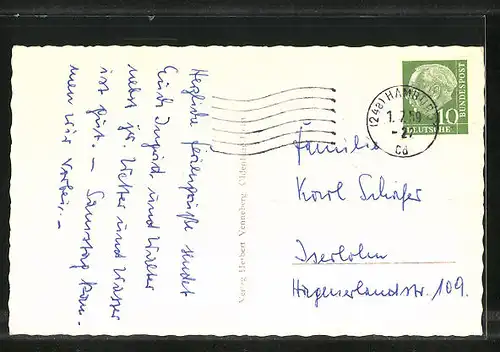 Herzliche Feriengrüße sendet
Euch Ingrid und Walter
nebst jr. Wetter und Wasser
ist gut. — Samstag kom-
men wir vorbei. —
Verlag Herbert Wenneberg, Oldenburg
(24a) HAMBURG
1.7.59
-21
cd
10
DEUTSCHE
BUNDESPOST
Familie
Karl Schäfer
Iserlohn
Hagenerlandstr. 109.